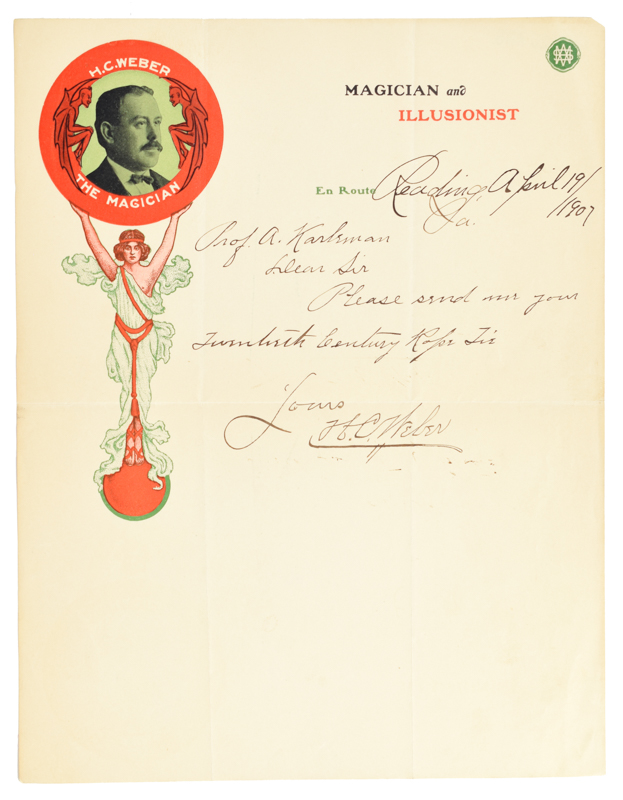 H.C. WEBER
THE MAGICIAN
MAGICIAN and
ILLUSIONIST
En Route Reading April 19/
Pa. /1907
Prof. A. Karlman
Dear Sir
Please send me your
Twentieth Century Rope Tie
Yours
H.C. Weber